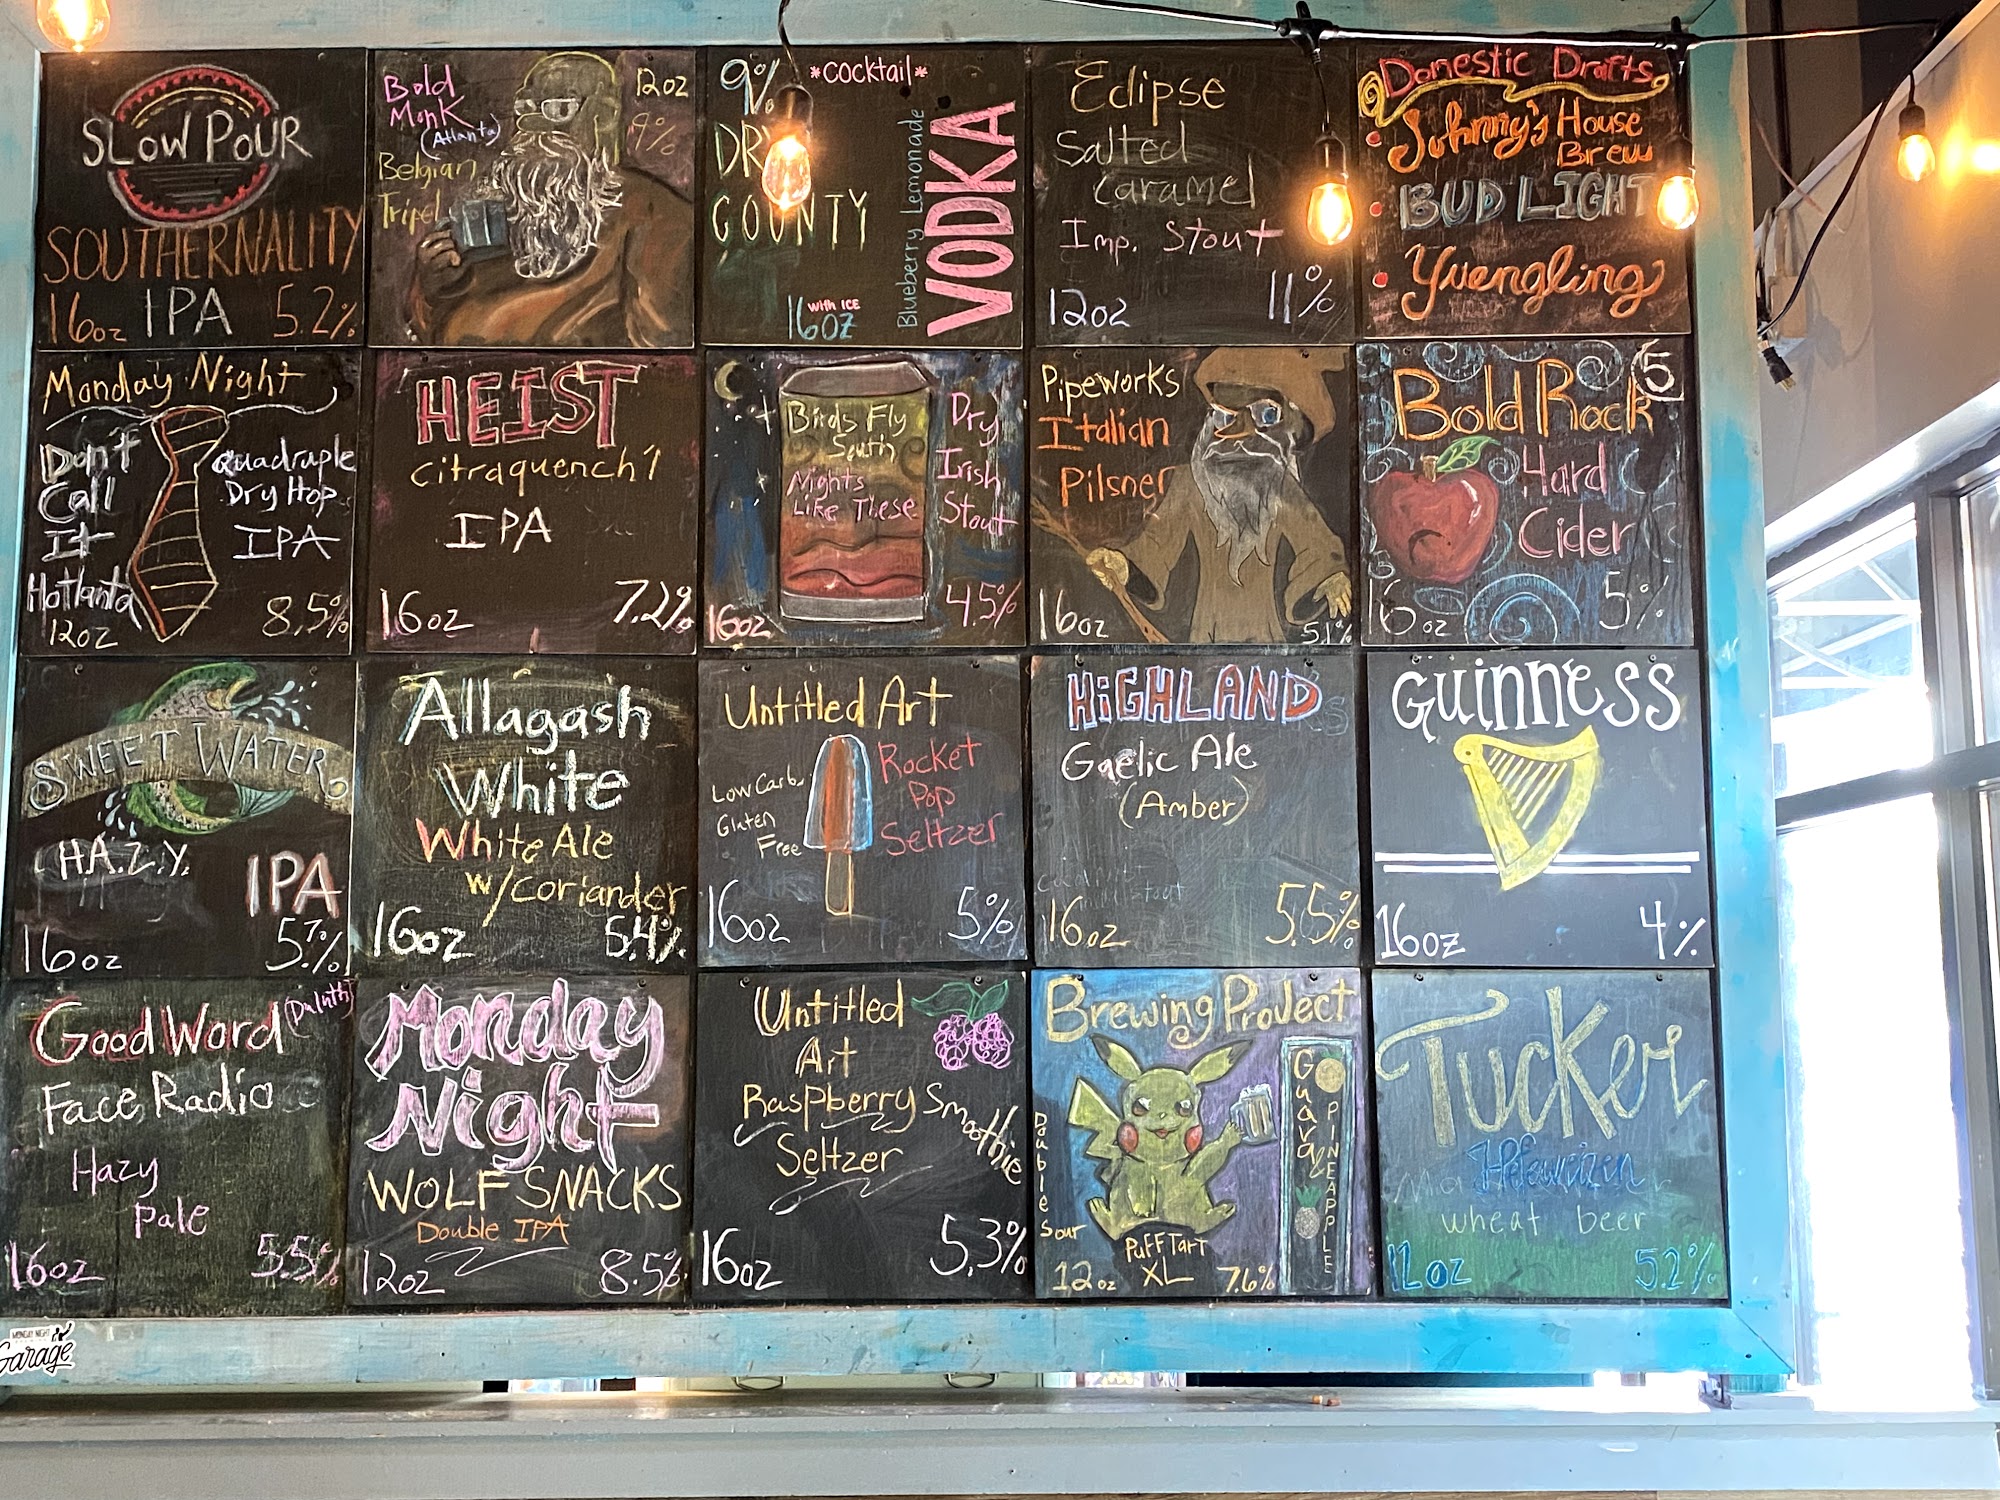 SLOW POUR
SOUTHERNALITY
16oz IPA 5.2%
Bold
Monk
(Atlanta)
Belgian
Tripel
12oz
9%
9% *cocktail*
DRY
COUNTY
Blueberry Lemonade
VODKA
with ICE
16oz
Eclipse
Salted
Caramel
Imp. Stout
12oz 11%
Domestic Drafts
Johnny's House
Brew
BUD LIGHT
Yuengling
Monday Night
Don't
Call
It
Hotlanta
Quadruple
Dry Hop
IPA
12oz 8.5%
HEIST
citraquench'l
IPA
16oz 7.2%
Birds Fly
South
Nights
Like These
Dry
Irish
Stout
16oz 4.5%
Pipeworks
Italian
Pilsner
16oz 5.1%
5
Bold Rock
Hard
Cider
16oz 5%
SWEET WATER
H.A.Z.Y.
IPA
16oz 5.7%
Allagash
White
White Ale
w/coriander
16oz 5.4%
Untitled Art
Low Carb
Gluten
Free
Rocket
Pop
Seltzer
16oz 5%
HiGHLAND
Gaelic Ale
(Amber)
16oz 5.5%
GUiNNESS
16oz 4%
Good Word (Duluth)
Face Radio
Hazy
Pale
16oz 5.5%
Monday
Night
WOLF SNACKS
Double IPA
12oz 8.5%
Untitled
Art
Raspberry Smoothie
Seltzer
16oz 5.3%
Brewing Project
Guava &
PINEAPPLE
Double
Sour
PUFF TART
XL
12oz 7.6%
Tucker
Hefeweizen
wheat beer
12oz 5.2%
MONDAY NIGHT
Garage